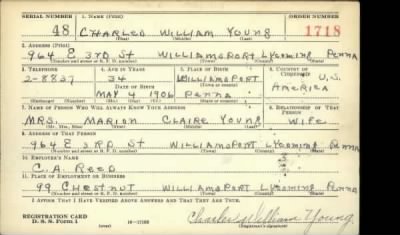 SERIAL NUMBER 1. NAME (Print) ORDER NUMBER
48 CHARLES WILLIAM YOUNG 1718
(First) (Middle) (Last)
2. ADDRESS (Print)
964 E 3RD St WILLIAMSPORT LYCOMING PENNA
(Number and street or R. F. D. number) (Town) (County) (State)
3. TELEPHONE 4. AGE IN YEARS 5. PLACE OF BIRTH 6. COUNTRY OF CITIZENSHIP
2-8837 34 WILLIAMSPORT U.S.
DATE OF BIRTH (Town or county) AMERICA
MAY 4 1906 PENNA
(Exchange) (Number) (Mo.) (Day) (Yr.) (State or country)
7. NAME OF PERSON WHO WILL ALWAYS KNOW YOUR ADDRESS 8. RELATIONSHIP OF THAT PERSON
MRS. MARION CLAIRE YOUNG WIFE
(Mr., Mrs., Miss) (First) (Middle) (Last)
9. ADDRESS OF THAT PERSON
964 E 3RD St WILLIAMSPORT LYCOMING PENNA
(Number and street or R. F. D. number) (Town) (County) (State)
10. EMPLOYER'S NAME
C. A. REED
11. PLACE OF EMPLOYMENT OR BUSINESS
99 CHESTNUT WILLIAMSPORT LYCOMING PENNA
(Number and street or R. F. D. number) (Town) (County) (State)
I AFFIRM THAT I HAVE VERIFIED ABOVE ANSWERS AND THAT THEY ARE TRUE.
REGISTRATION CARD
D. S. S. Form 1 16-17105 Charles William Young
(Registrant's signature)